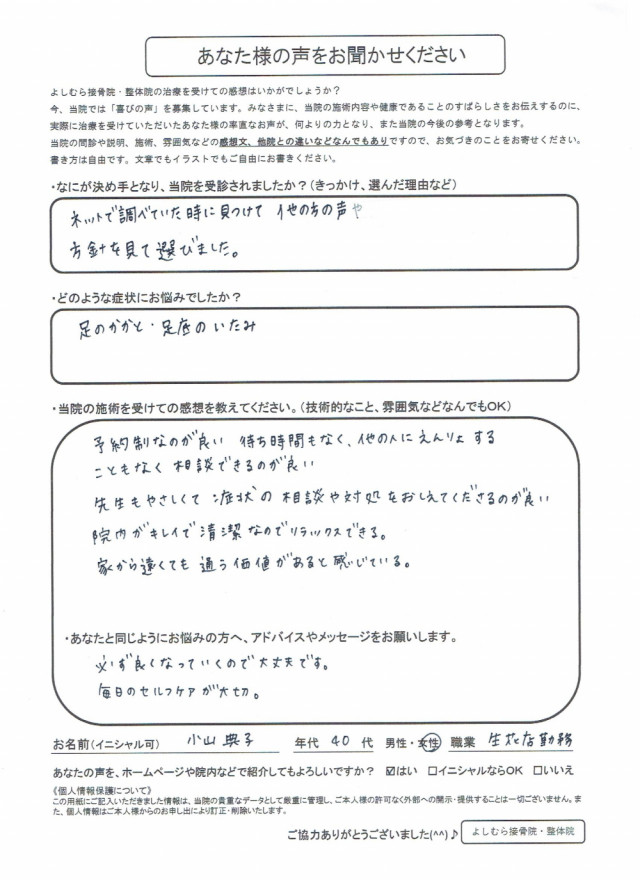 あなた様の声をお聞かせください
よしむら接骨院・整体院の治療を受けての感想はいかがでしょうか？
今、当院では「喜びの声」を募集しています。みなさまに、当院の施術内容や健康であることのすばらしさをお伝えするのに、
実際に治療を受けていただいたあなた様の率直なお声が、何よりの力となり、また当院の今後の参考となります。
当院の問診や説明、施術、雰囲気などの感想文、他院との違いなどなんでもありですので、お気づきのことをお寄せください。
書き方は自由です。文章でもイラストでもご自由にお書きください。
・なにが決め手となり、当院を受診されましたか？（きっかけ、選んだ理由など）
ネットで調べていた時に見つけて 他の方の声や
方針を見て選びました。
・どのような症状にお悩みでしたか？
足のかかと・足底のいたみ
・当院の施術を受けての感想を教えてください。（技術的なこと、雰囲気などなんでもOK）
予約制なのが良い 待ち時間もなく、他の人にえんりょする
こともなく相談できるのが良い
先生もやさしくて 症状の相談や対処をおしえてくださるのが良い
院内がキレイで清潔なのでリラックスできる。
家から遠くても通う価値があると感じている。
・あなたと同じようにお悩みの方へ、アドバイスやメッセージをお願いします。
必ず良くなっていくので大丈夫です。
毎日のセルフケアが大切。
お名前（イニシャル可） 小山 典子 年代 40 代 男性・女性 職業 生花店勤務
あなたの声を、ホームページや院内などで紹介してもよろしいですか？ ☑はい □イニシャルならOK □いいえ
《個人情報保護について》
この用紙にご記入いただきました情報は、当院の貴重なデータとして厳重に管理し、ご本人様の許可なく外部への開示・提供することは一切ございません。ま
た、個人情報はご本人様からのお申し出により訂正・削除いたします。
ご協力ありがとうございました(^^)♪ よしむら接骨院・整体院